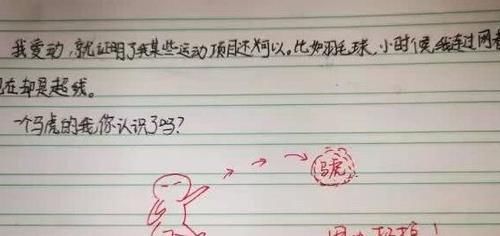 我爱动，就证明了我某些运动项目还可以。比如羽毛球，小时候，我连过网都
现在却是超线。
一个马虎的我，你认识了吗？
马虎